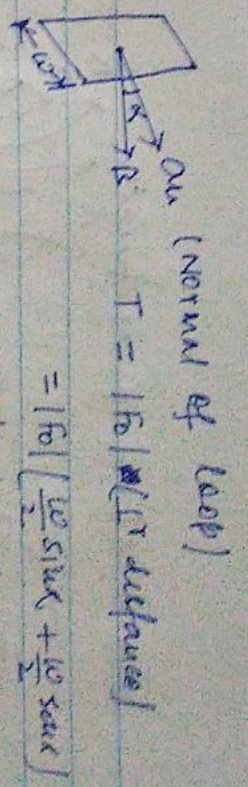 an (Normal of loop)
α
B
w
T = |F₀| (⊥ʳ distance)
= |F₀| (w/2 sinα + w/2 sinα)